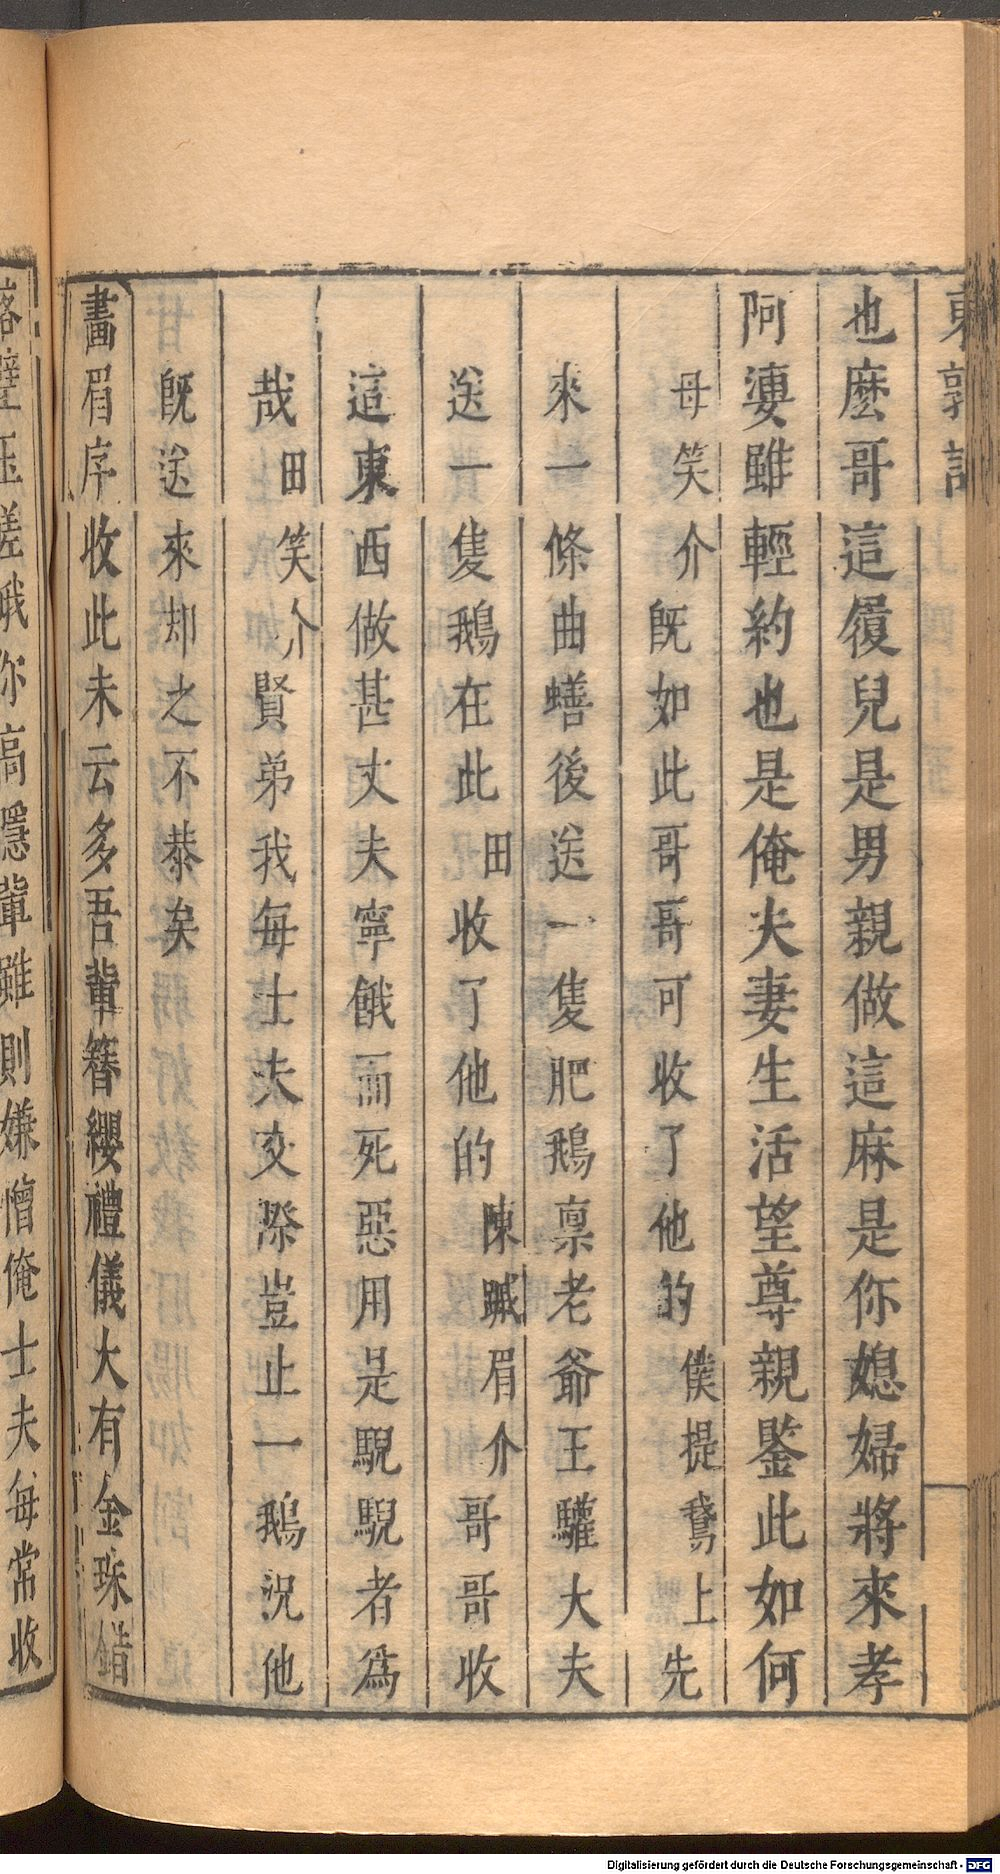 東郭記
也麼哥這履兒是男親做這麻是你媳婦將來孝
阿㜢雖輕約也是俺夫妻生活望尊親鑒此如何
母笑介既如此哥哥可收了他的僕提鵞上先
來一條曲蟮後送一隻肥鵝稟老爺王驩大夫
送一隻鵝在此田收了他的陳蹙眉介哥哥收
這東西做甚丈夫寧餓而死惡用是鶃鶃者爲
哉田笑介賢弟我每士夫交際豈止一鵝況他
既送來却之不恭矣
畵眉序收此未云多吾輩簪纓禮儀大有金珠錯
壁玉嵯峨你高隱輩雖則嫌憎俺士夫每常收
Digitalisierung gefördert durch die Deutsche Forschungsgemeinschaft - DFG